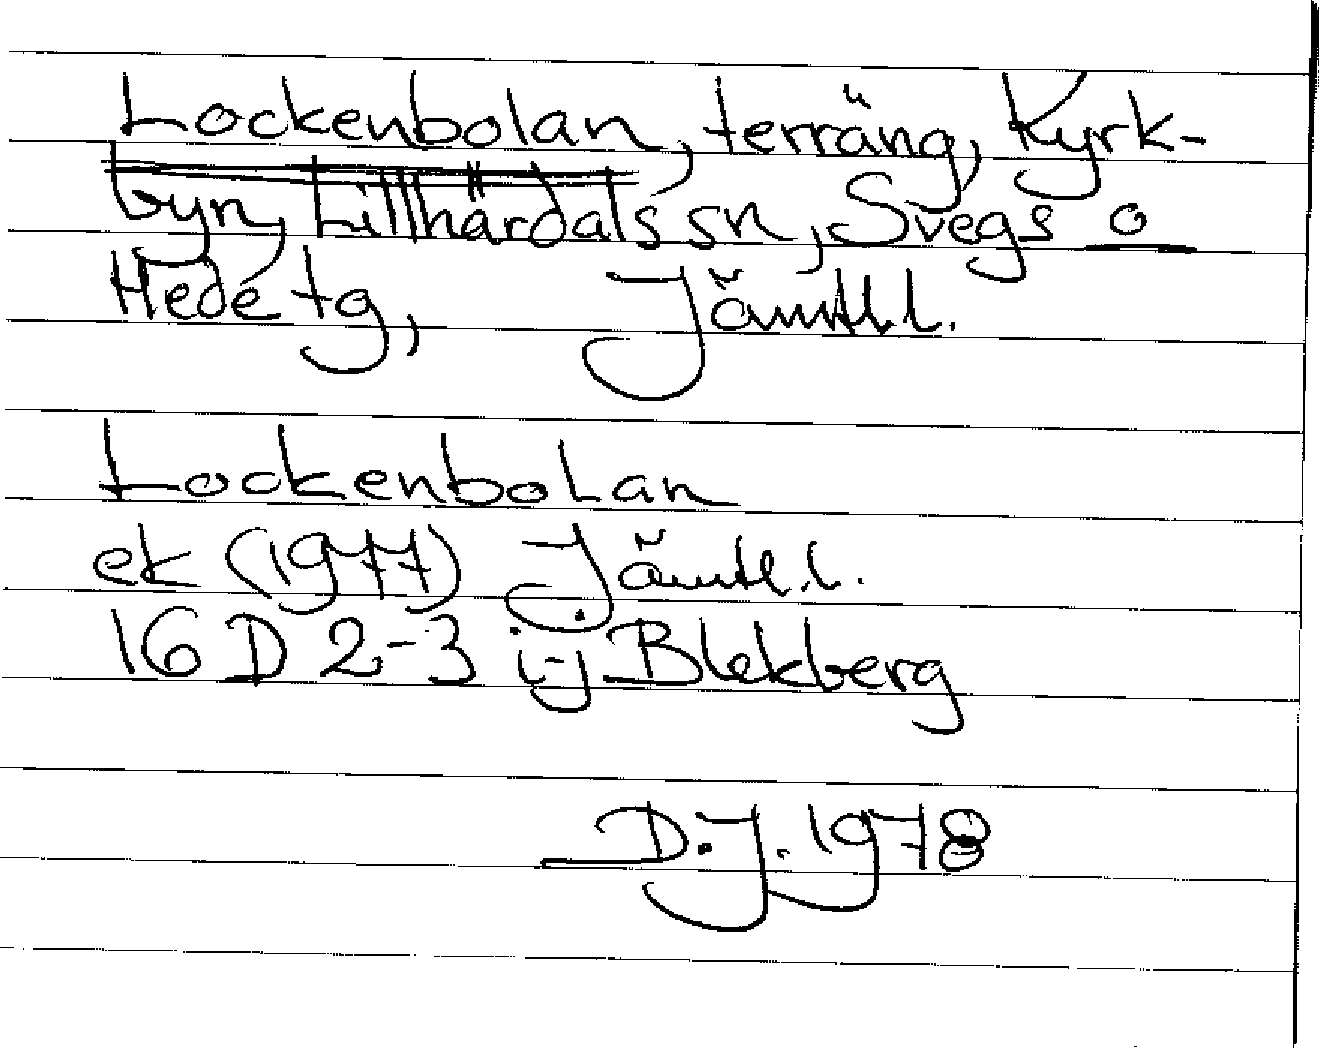 Lockenbolan, terräng, Kyrk-
byn, Lillhärdals sn, Svegs o
Hede tg, Jämtl.l.
Lockenbolan
ek (1977) Jämtl.l.
16 D 2-3 i-j Blekberg
D.J. 1978